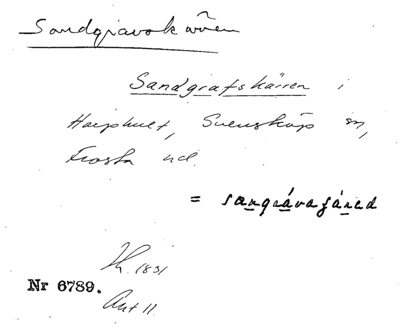 Sandgravokärren
Sandgrafskärren i
Harphult, Svensköp sn,
Frosta hd.
= sangrávaʃáred
Lh. 1831
Nr 6789.
Akt 11.